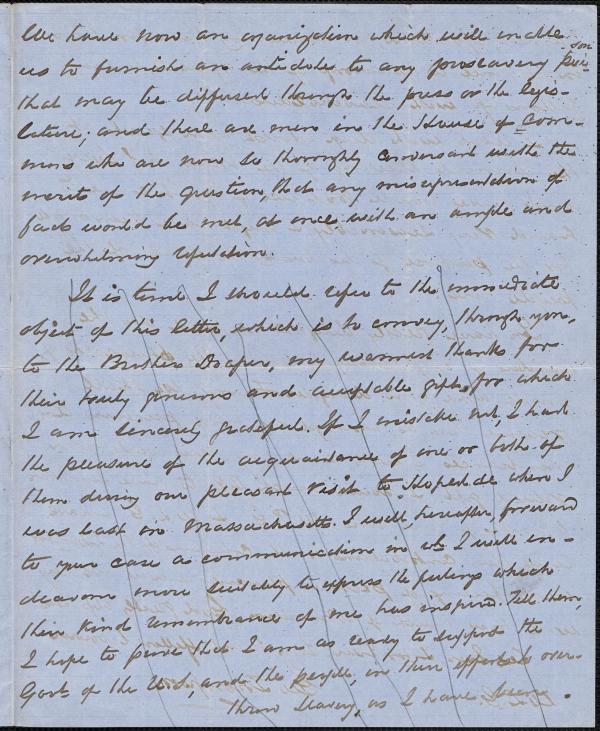 We have now an organization which will enable
us to furnish an antidote to any proslavery poi-
son
that may be diffused through the press or the legis-
lature; and there are men in the House of Com-
mons who are now so thoroughly conversant with the
merits of the question, that any misrepresentation of
facts would be met, at once with an ample and
overwhelming refutation.
It is time I should refer to the immediate
object of this letter, which is to convey, through you,
to the Brothers Draper, my warmest thanks for
their truly generous and acceptable gifts for which
I am sincerely grateful. If I mistake not, I had
the pleasure of the acquaintance of one or both of
them during our pleasant visit to Hopedale when I
was last in Massachusetts. I will, hereafter, forward
to your care a communication in wh. I will en-
deavour more suitably to express the feelings which
their kind remembrance of me has inspired. Tell them,
I hope to prove that I am as ready to support the
Govt. of the U.S, and the people, in their efforts to over-
throw Slavery, as I have been